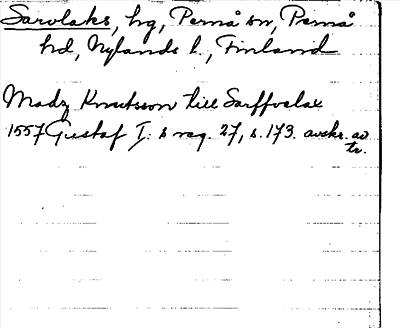 Sarvlaks, hg, Pernå sn, Pernå
hd, Nylands l., Finland
Madz Knutsson till Sarffvelax
1557 Gustaf I:s reg. 27, s. 173. avskr. av
tr.